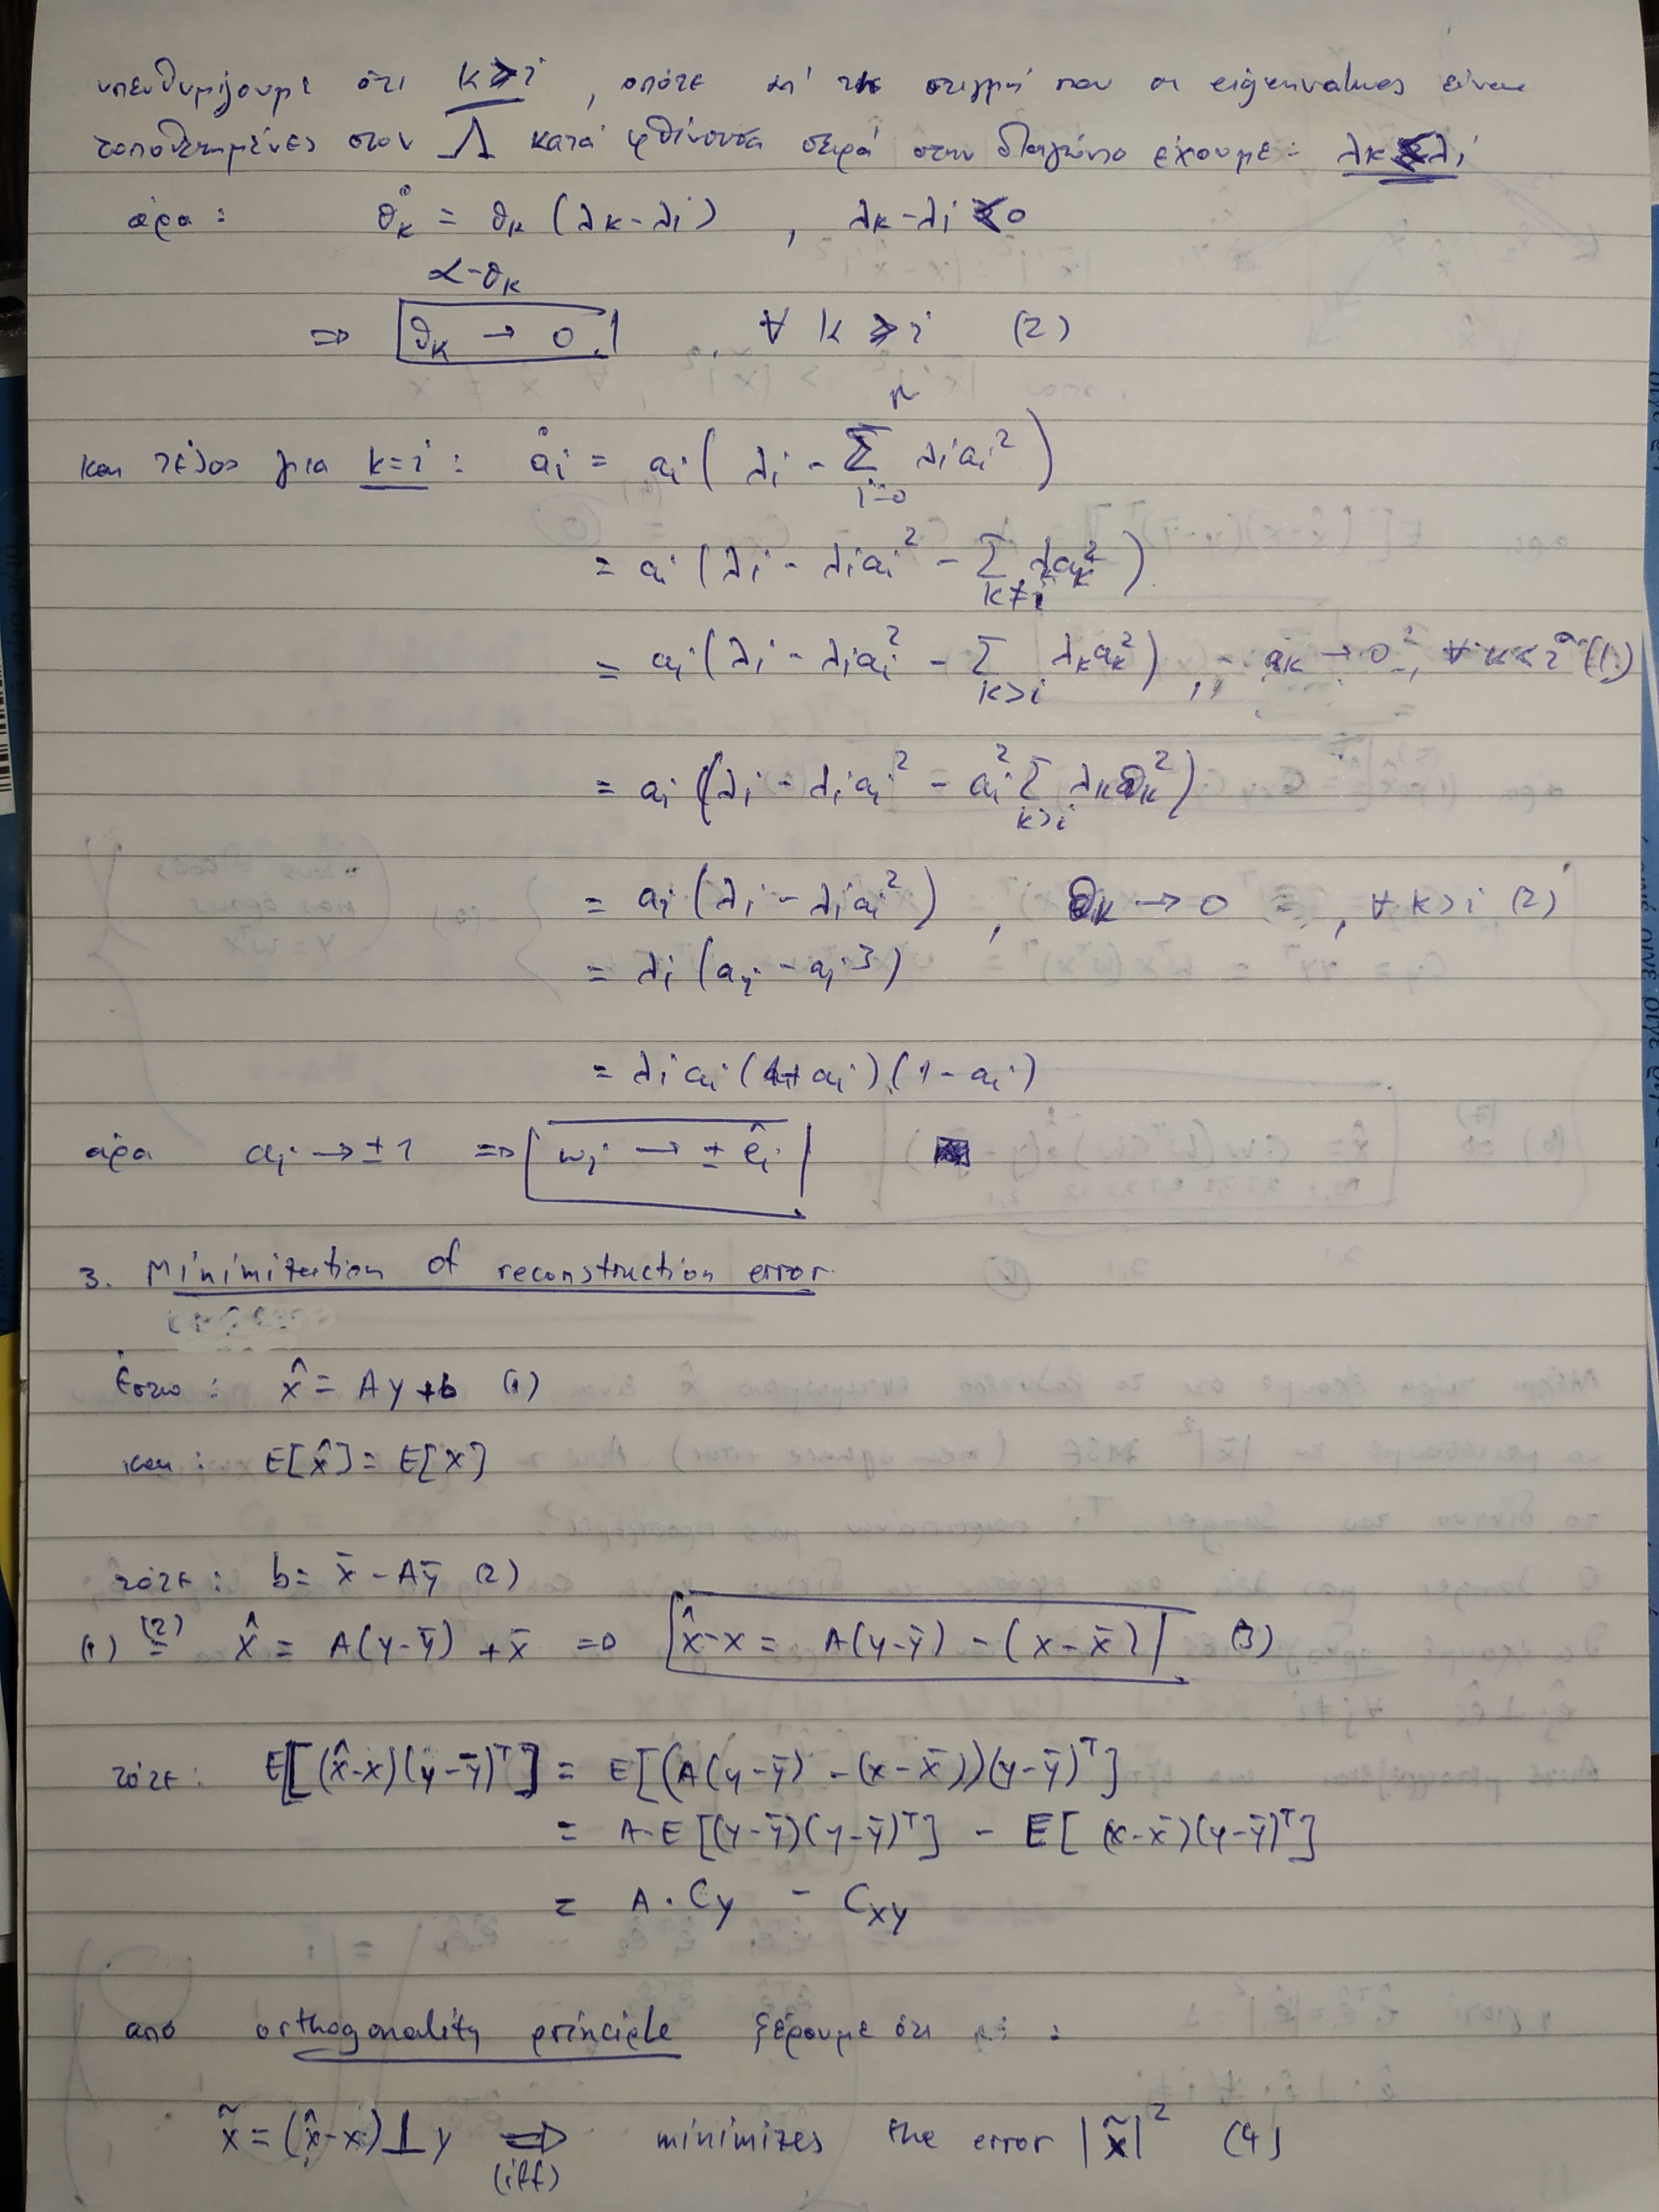 υπενθυμίζουμε ότι k>i, οπότε απ' τη στιγμή που οι eigenvalues είναι
τοποθετημένες στον Λ κατά φθίνουσα σειρά στην διαγώνιο έχουμε: λk<λi
άρα: θ̊k = θk (λk-λi) , λk-λi < 0
∝ -θk
⇒ θk → 0 , ∀ k > i (2)
και τέλος για k=i: åi = ai ( λi - Σ_{i=0}^{n} λi ai² )
= ai ( λi - λi ai² - Σ_{k≠i} λk ak² )
= ai ( λi - λi ai² - Σ_{k>i} λk ak² ) , ak → 0 , ∀ k<i (1)
= ai ( λi - λi ai² - ai² Σ_{k>i} λk θk² )
= ai ( λi - λi ai² ) , θk → 0 , ∀ k>i (2)
= λi (ai - ai³)
= λi ai (1+ai)(1-ai)
άρα ai → ±1 ⇒ wi → ± êi
3. Minimization of reconstruction error
Έστω: x̂ = Ay+b (1)
και: E[x̂] = E[x]
τότε: b = x̄ - Aȳ (2)
(1) =(2) x̂ = A(y-ȳ) + x̄ ⇒ x̂-x = A(y-ȳ) - (x-x̄) (3)
τότε: E[(x̂-x)(y-ȳ)ᵀ] = E[(A(y-ȳ) - (x-x̄))(y-ȳ)ᵀ]
= A·E[(y-ȳ)(y-ȳ)ᵀ] - E[(x-x̄)(y-ȳ)ᵀ]
= A·Cy - Cxy
από orthogonality principle ξέρουμε ότι :
x̃ = (x̂-x) ⊥ y ⇔ minimizes the error |x̃|² (4)
(iff)